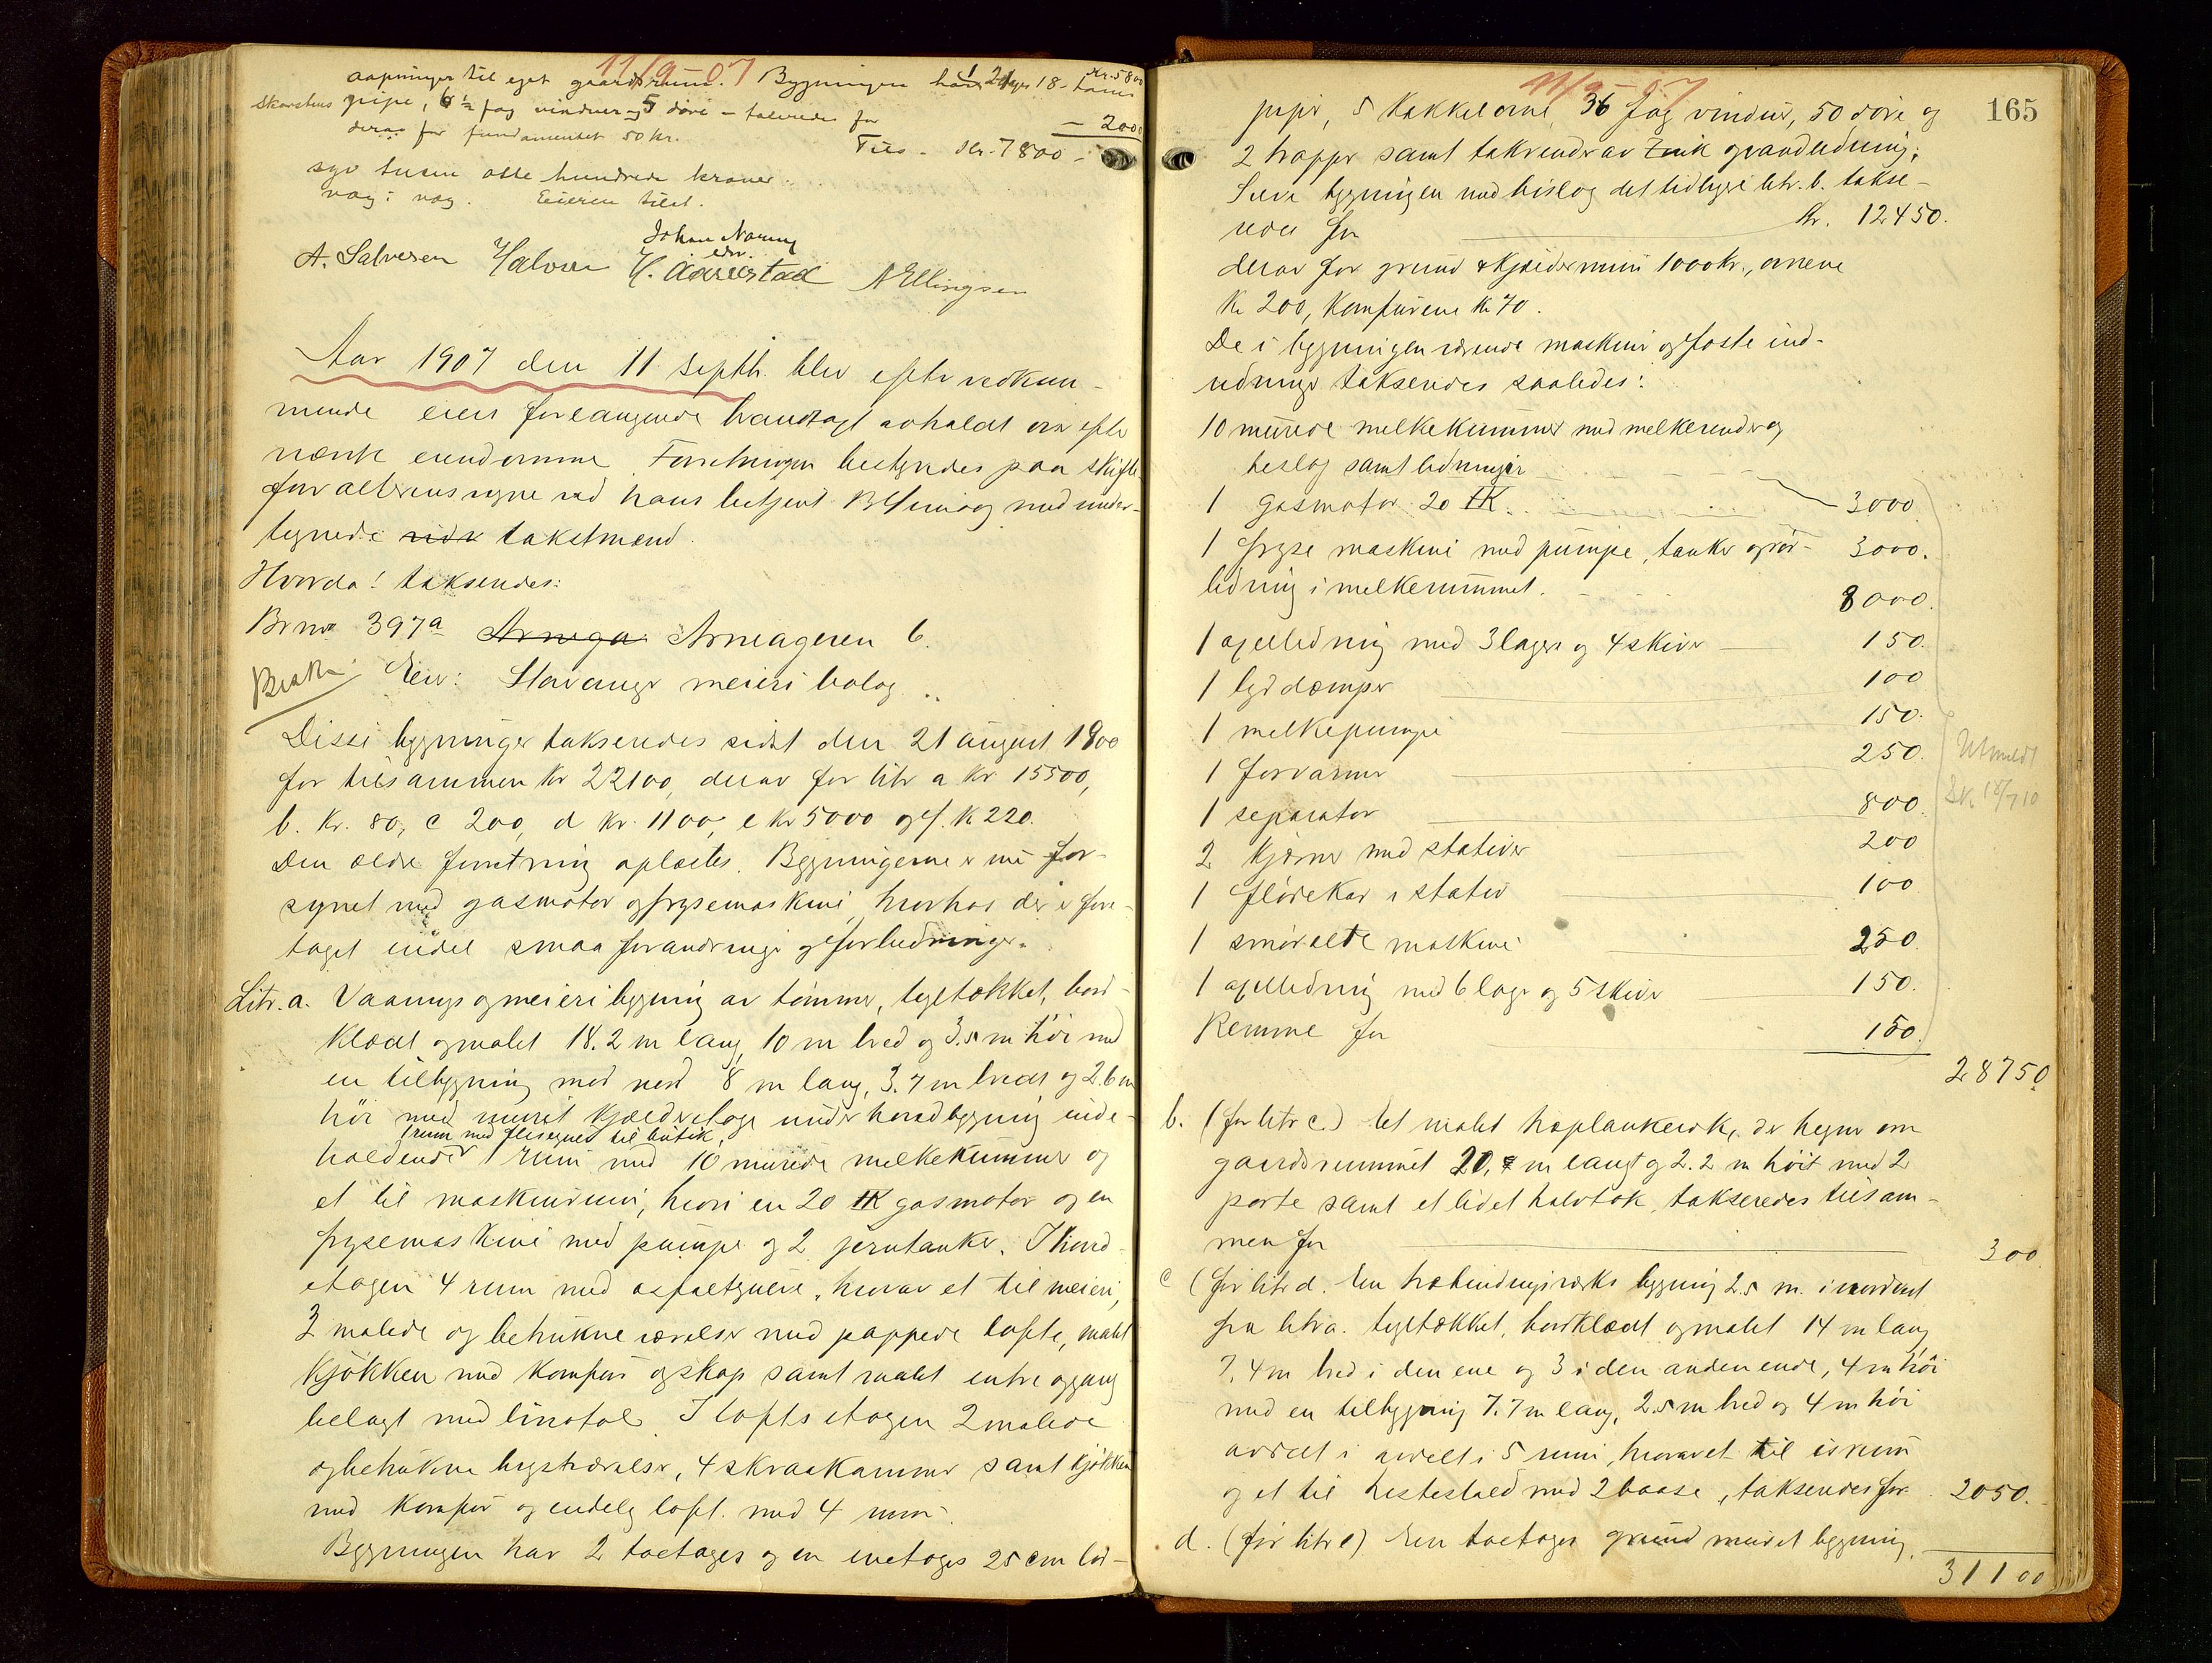 11/9-07
aapninger til eget gaardsrum. Bygningen har 1 2 etages 18-toms Kr. 5800
skorstenspipe, 6 1/2 fag vinduer og 5 döre – taxeredes for – 2000
derav for fundamentet 50 kr. Tils. Kr. 7800 –
syv tusen otte hundrede kroner.
Eieren tilst.
Johan Norang
A. Salvesen Halvorsen E. Aarrestad A Ellingsen
Aar 1907 den 11 septbr. blev efter vedkom-
mende eiers forlangende brandtagt avholdt over efter
nævnte eiendomme. Forretningen bestyredes paa skifte-
forvalterens vegne ved hans betjent med under-
tegnede takstmænd.
Hvorda! takseredes:
Brnr 397a Arneageren 6.
Eier: Stavanger meieri bolag
Disse bygninger takseredes sidst den 21 august 1900
for tilsammen kr 22100, derav for litr a kr 15500,
b. kr. 80, c 200, d kr. 1100, e kr 5000 og f. k 220.
Den ældre forretning oplæstes. Bygningerne er nu for-
synet med gasmotor og frysemaskine, hvorhos der er fore-
taget endel smaa forandringer og forbedringer.
Litr. a. Vaanings og meieribygning av tømmer, tegltækket, bord-
klædt og malet 18.2 m lang, 10 m bred og 3.5 m höi med
en tilbygning mod nord 8 m lang, 3.7 m bred og 2.6 m
höi med muret kjælderetage under hovedbygning inde-
1 rum med flisegulv til butik,
holdende 1 rum med 10 murede melkekummer og
et til maskinrum, hvori en 20 HK gasmotor og en
frysemaskine med pumpe og 2 jerntanker. I hoved-
etagen 4 rum med asfaltgulve, hvorav et til meieri,
3 malede og betrukne værelser med pappede lofte, malet
kjökken med komfur og skap samt malet entre og gang
belagt med linotol. I loftsetagen 2 malede
og betrukne kvistværelser, 4 skraakammer samt kjökken
med komfur og endelig loft med 4 rum.
Bygningen har 2 toetages og en enetages 25 cm lös-
165
11/9-07
piper, 5 kakkelovne, 36 fag vinduer, 50 döre og
2 trapper samt takrender av Zink og vandledning;
Selve bygningen med bislag det tidligere litr. b. takse-
redes for kr. 12450.
derav for grund & kjælderrum 1000 kr., ovnene
kr 200, komfurene kr 70.
De i bygningen værende maskiner og faste ind-
redninger takseredes saaledes:
10 murede melkekummer med melkerender og
beslag samt ledninger 3000
1 gasmotor 20 HK 3000.
1 fryse maskine med pumpe, tanker og rör-
ledning i melkerummet. 8000.
1 axelledning med 3 lager og 4 skiver 150.
1 lyddæmper 100
1 melkepumpe 150.
1 forvarmer 250.
1 separator 800.
2 kjærner med stativer 200
1 flödekar i stativ 100
1 smörælte maskine 250.
1 axelledning med 6 lager og 5 skiver 150.
Remme for 150.
28750.
Utmeldt
b. (för litr c.) Et malet træplankeværk, der hegner om
gaardsrummet 20. m langt og 2.2 m höit med 2
porte samt et lidet halvtak, takseredes tilsam-
men for 300.
c (för litr d. En træbindingsværks bygning 2.5 m. i nordvest
fra litr a. tegltækket, bordklædt og malet 14 m lang
7.4 m bred i den ene og 3 i den anden ende, 4 m höi
med en tilbygning 7.7 m lang, 2.5 m bred og 4 m höi
avdelt i avdelt i 5 rum, hvorav et til isrum
og et til hestestald med 2 baase, takseredes for 2050.
d. (för litr e) En toetages grund muret bygning,
31100